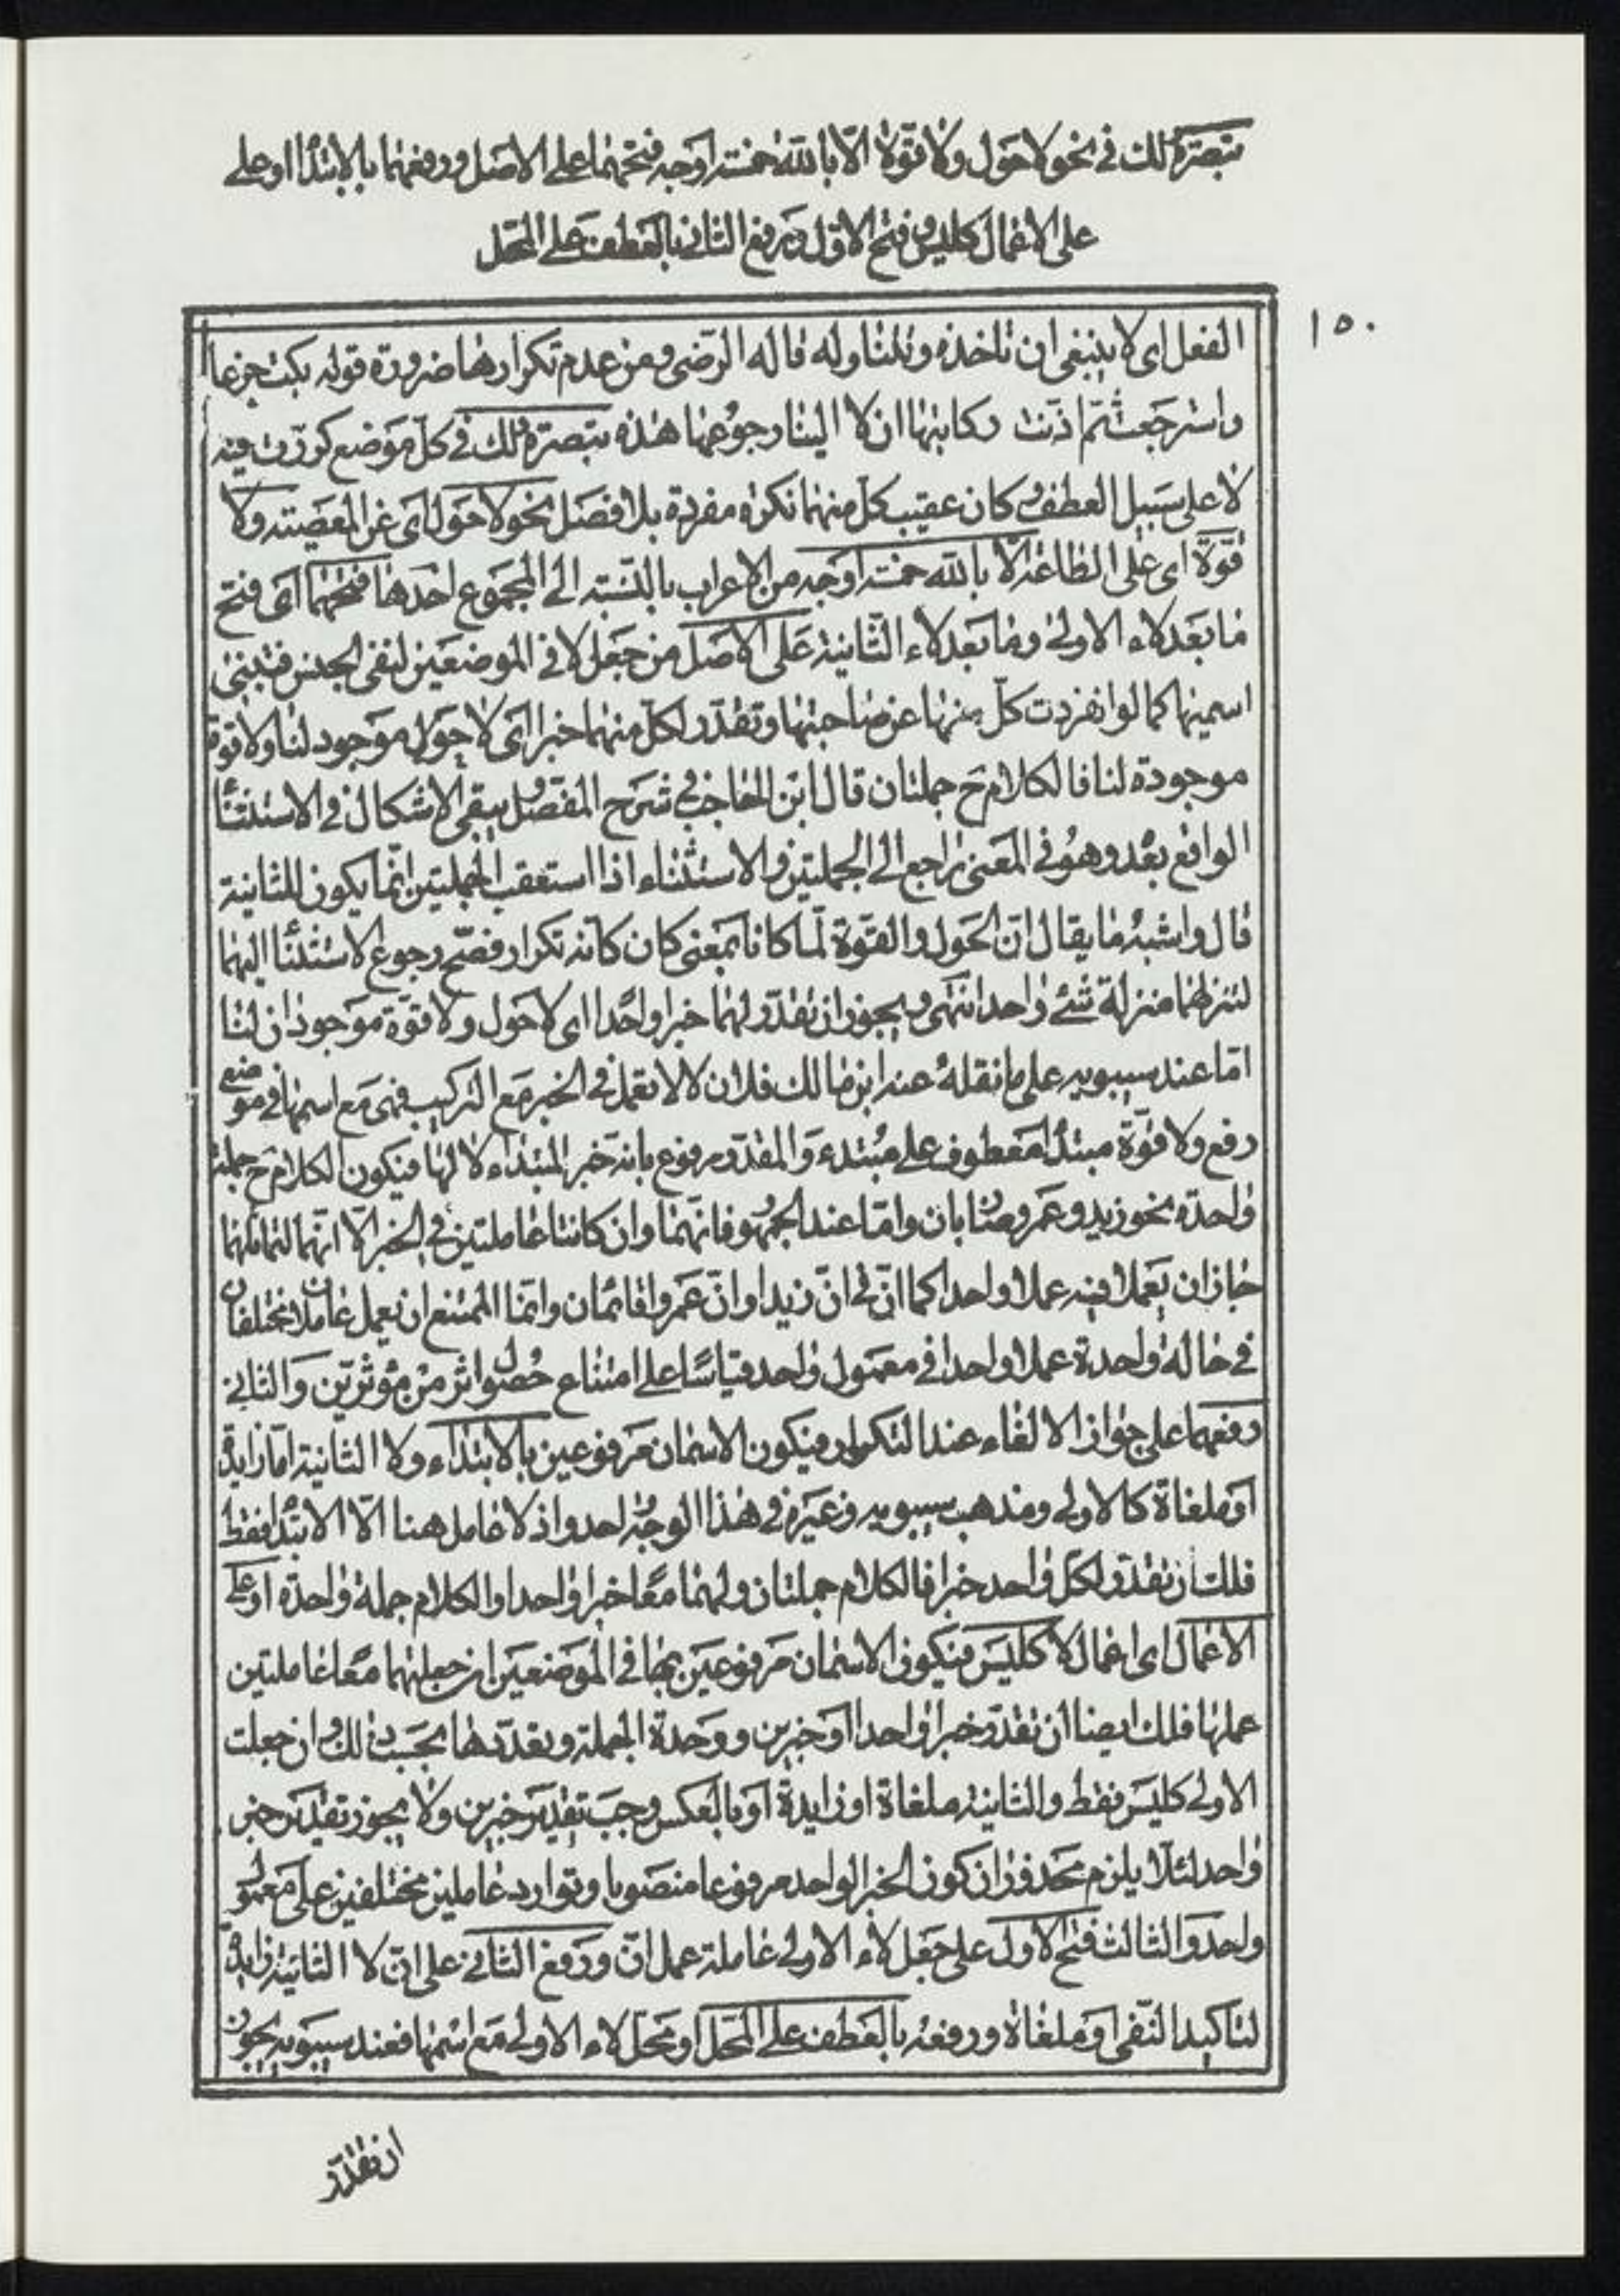 تبصرة لك في نحو لا حول ولا قوة الا بالله خمسة اوجه فتحهما على الاصل ورفعهما بالابتدا او على
على الاعمال كليس وفتح الاول ورفع الثاني بالعطف على المحل
١٥٠
الفعل اى لا ينبغي ان تاخذه وتتناوله قاله الرّضى ومن عدم تكرارها ضرورة قوله بكت جزعا
واسترجعت ثمّ اذنت ركابئها ان لا الينا رجوعها هذه تبصرة لك في كلّ موضع كررت فيه
لا على سبيل العطف وكان عقيب كلّ منهما نكرة مفردة بلا فصل نحو لا حول اى عن المعصية ولا
قوّة اى على الطاعة الّا بالله خمسة اوجه من الاعراب بالنّسبة الى المجموع احدها فتحهما اى فتح
ما بعد لاء الاولى وما بعد لاء الثّانية على الاصل من جعل لا في الموضعين لنفي الجنس فتبنى
اسميها كما لو انفردت كلّ منها عن صاحبتها وتقدّر لكلّ منهما خبرا اى لا حول موجود لنا ولا قوة
موجودة لنا فالكلام ح جملتان قال ابن الحاجب في شرح المفصّل يبقى الاشكال في الاستثنأ
الواقع بعد وهو في المعنى راجع الى الجملتين والاستثناء اذا استعقب الجملتين انّما يكون للثانية
قال واشبه ما يقال انّ الحول والقوّة لمّا كانا بمعنى كان كانه تكرار فصّح رجوع الاستثنأ اليهما
لتنزلهما منزلة شئ واحد انتهى ويجوز ان تقدّر لهما خبرا واحدًا اى لا حول ولا قوّة موجودان لنا
امّا عند سيبويه على ما نقله عنه ابن مالك فلان لا لا تعمل في الخبر مع التركيب فهى مع اسمها في موضع
رفع ولا قوّة مبتدأ معطوف على مبتدء والمقدّر مرفوع بانه خبر المبتداء لا لها فيكون الكلام ح جملة
واحدة نحو زيد وعمرو ضاربان وامّا عند الجمهور فانّهما وان كانتا عاملتين في الخبر الّا انّهما لتماثلهما
جاز ان يعملا فيه عملا واحدا كما انّ في انّ زيدا وانّ عمروا قائمان وانّما الممتنع ان يعمل عاملان مختلفان
في حالة واحدة عملا واحدا في معمول واحد قياسًا على امتناع حصول اثر من مؤثرين والثاني
رفعهما على جواز الالغاء عند التكرار فيكون الاسمان مرفوعين بالابتداء ولا الثانية امّا زايدة
او ملغاة كالاولى ومذهب سيبويه وغيره في هذا الوجه واحد واذ لا عامل هنا الّا الابتدا فقط
فلك ان تقدّر لكلّ واحد خبرا فالكلام جملتان ولهما معًا خبرا واحدا والكلام جملة واحدة او على
الاعمال اى اعمال لا كليس فيكون الاسمان مرفوعين بها في الموضعين ان جعلتهما معًا عاملتين
عملها فلك ايضا ان تقدّر خبرا واحدا او خبرين ووحدة الجملة وتعدّدها بحسب ذلك وان جعلت
الاولى كليس فقط والثانية ملغاة او زايدة او بالعكس وجب تقدير خبرين ولا يجوز تقدير خبر
واحد لئلّا يلزم محذوران كون الخبر الواحد مرفوعا منصوبا وتوارد عاملين مختلفين على معمول
واحد والثالث فتح الاول على جعل لاء الاولى عاملة عمل انّ ورفع الثاني على انّ لا الثانية زايدة
لتاكيد النّفي او ملغاة ورفعه بالعطف على المحل او محلّ لاء الاولى مع اسمها فعند سيبويه يجوز
ان تقدّر